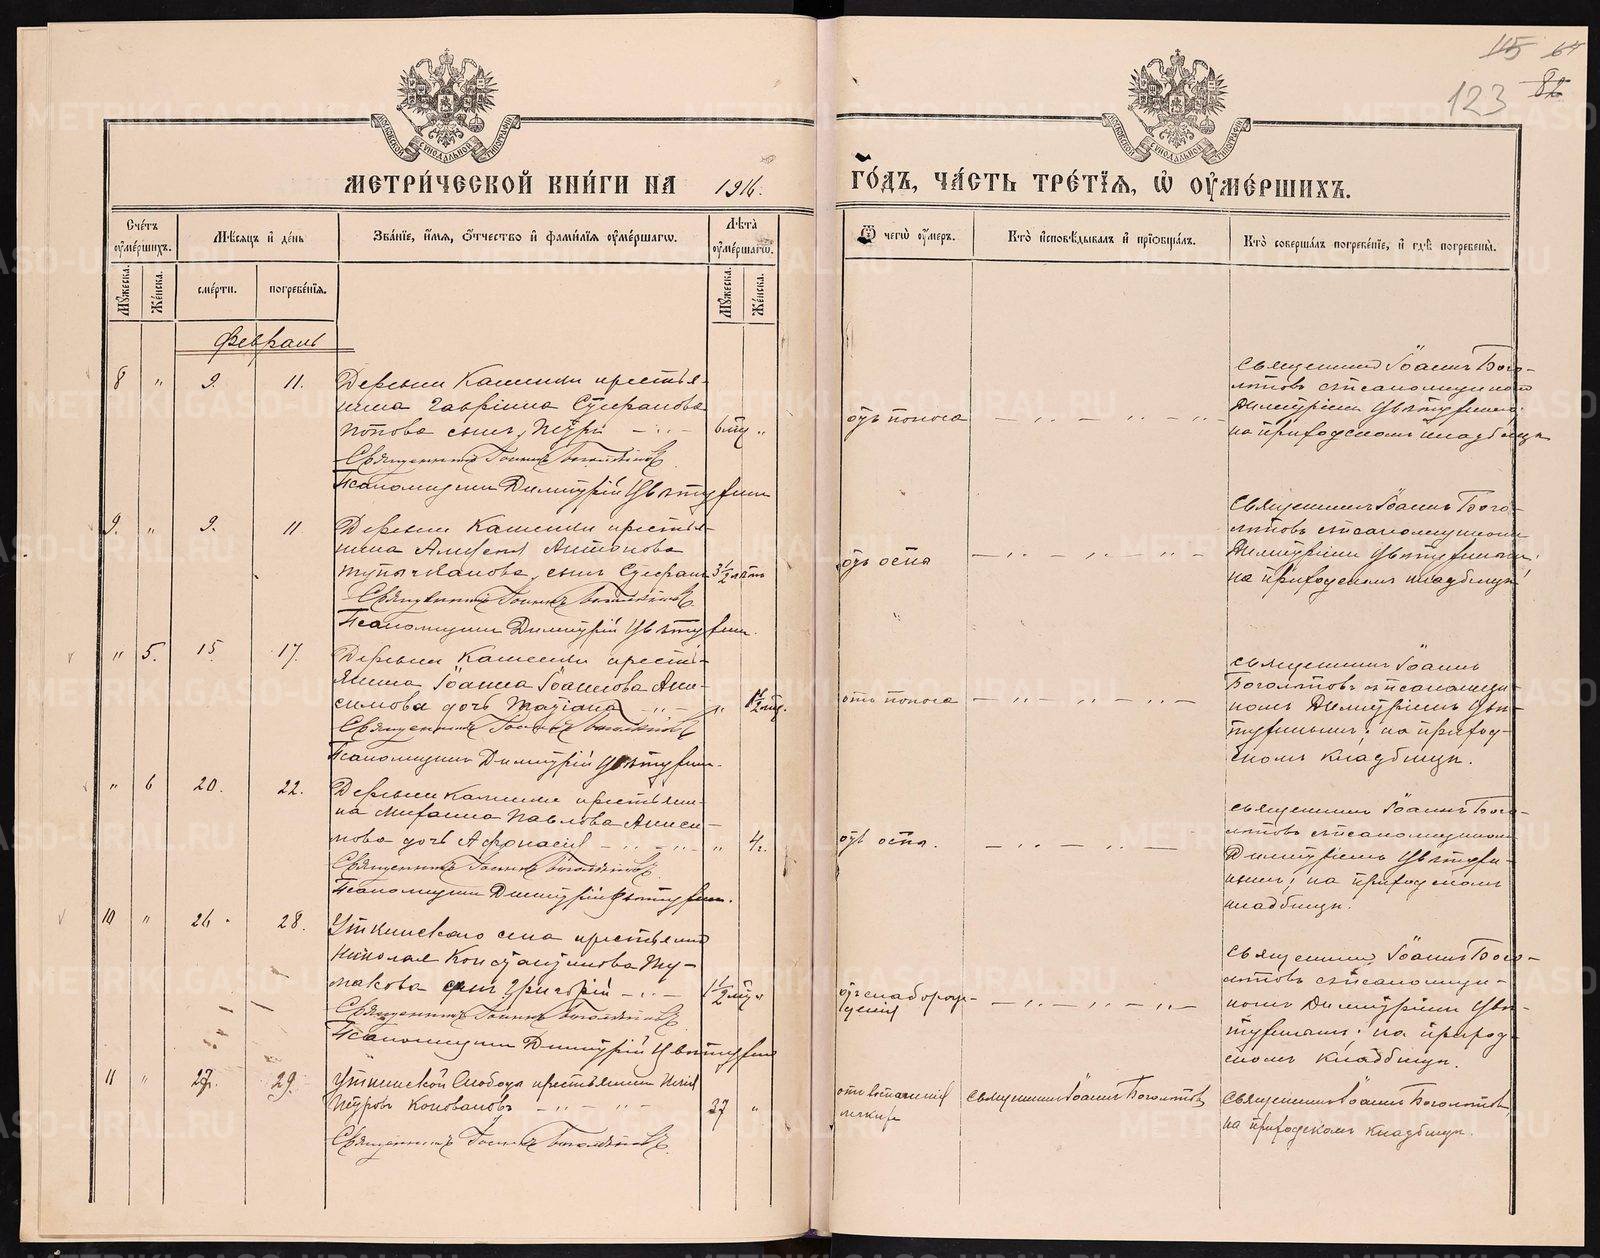 115 64
123 82
МОСКОВСКОЙ СѴНОДАЛЬНОЙ ТИПОГРАФІИ
МОСКОВСКОЙ СѴНОДАЛЬНОЙ ТИПОГРАФІИ
МЕТРИ́ЧЕСКОЙ КНИ́ГИ НА 1916. ГО́ДЪ, ЧА́СТЬ ТРЕ́ТЇѦ, Ѽ ОУ҆МЕ́РШИХЪ.
Сче́тъ оу҆ме́ршихъ.
Мѣ́сѧцъ и҆ де́нь
Зва́нїе, и҆́мѧ, ѻ҆́тчество и҆ фами́лїѧ оу҆ме́ршагѡ.
Лѣ́та оу҆ме́ршагѡ.
Ѿ чегѡ̀ оу҆́меръ.
Кто̀ и҆сповѣ́дывалъ и҆ прїѡбща́лъ.
Кто̀ соверша́лъ погребе́нїе, и҆ гдѣ̀ погребены̀.
Мꙋ́жеска. Же́нска. сме́рти. погребе́нїѧ. Мꙋ́жеска. Же́нска.
Февраль
8 " 9. 11. Деревни Каменки крестья-
нина Гавріила Стефанова
Попова сынъ, Петръ 6 мц "
Священникъ Іоаннъ Боголѣповъ
Псаломщикъ Димитрій Цвѣтухинъ
отъ поноса
Священникъ Іоаннъ Бого-
лѣповъ съ псаломщикомъ
Димитріемъ Цвѣтухинымъ
на приходскомъ кладбищѣ
9. " 9. 11 Деревни Каменки крестья-
нина Алексѣя Антонова
сынъ Стефанъ 3½ лѣтъ
Священникъ Іоаннъ Боголѣповъ
Псаломщикъ Димитрій Цвѣтухинъ.
отъ оспы
Священникъ Іоаннъ Бого-
лѣповъ съ псаломщикомъ
Димитріемъ Цвѣтухинымъ.
на приходскомъ кладбищѣ
" 5. 15. 17. Деревни Каменки кресть-
янина Іоанна Іоаннова Ани-
симова дочь Татіана " 1½ мц.
Священникъ Іоаннъ Боголѣповъ
Псаломщикъ Димитрій Цвѣтухинъ.
отъ поноса
Священникъ Іоаннъ
Боголѣповъ съ псаломщи-
комъ Димитріемъ Цвѣ-
тухинымъ, на приход-
скомъ кладбищѣ.
" 6 20. 22. Деревни Каменки крестьяни-
на Михаила Павлова Аниси-
мова дочь Афонасія " 4 г.
Священникъ Іоаннъ Боголѣповъ
Псаломщикъ Димитрій Цвѣтухинъ.
отъ оспы.
Священникъ Іоаннъ Бого-
лѣповъ съ псаломщикомъ
Димитріемъ Цвѣтухи-
нымъ, на приходскомъ
кладбищѣ.
10 " 26. 28. Уткинскаго села крестьянина
Николая Константинова Ту-
макова сынъ Григорій 1½ мц "
Священникъ Іоаннъ Боголѣповъ
Псаломщикъ Димитрій Цвѣтухинъ
отъ слаборож-
денія
Священникъ Іоаннъ Бого-
лѣповъ съ псаломщи-
комъ Димитріемъ Цвѣ-
тухинымъ. на приход-
скомъ кладбищѣ.
11 " 27. 29. Уткинской Слободы крестьянинъ Илія
Петровъ Коноваловъ 27 "
Священникъ Іоаннъ Боголѣповъ
отъ воспаленія
легкихъ
Священникъ Іоаннъ Боголѣповъ
Священникъ Іоаннъ Боголѣповъ
на приходскомъ кладбищѣ.
METRIKI.GASO-URAL.RU